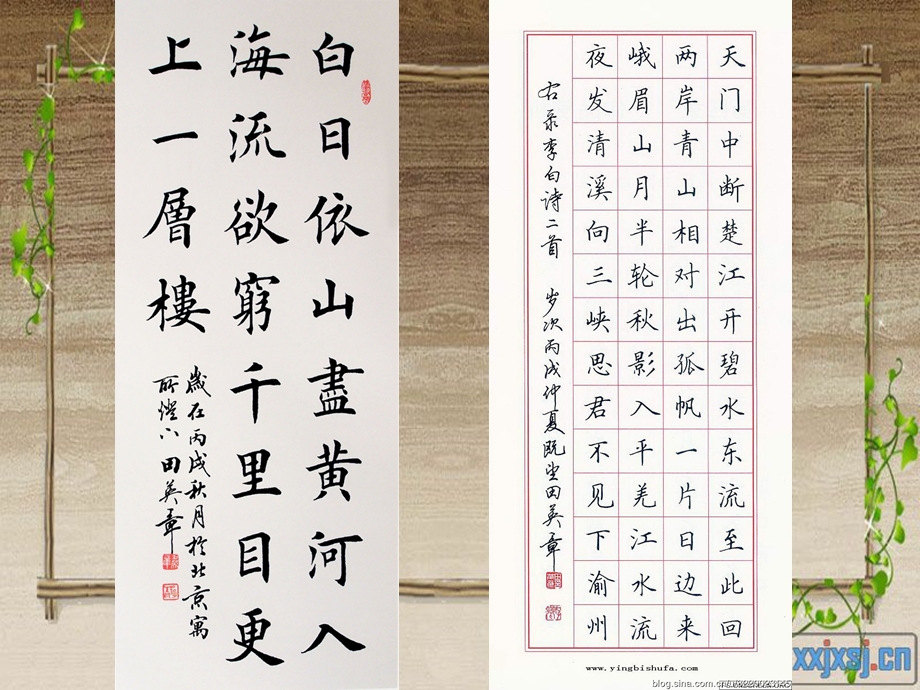 白日依山盡黄河入
海流欲窮千里目更
上一層樓
歲在丙戌秋月於北京寓
所燈下 田英章
天门中断楚江开碧水东流至此回
两岸青山相对出孤帆一片日边来
峨眉山月半轮秋影入平羌江水流
夜发清溪向三峡思君不见下渝州
右录李白诗二首 岁次丙戌仲夏既望田英章
www.yingbishufa.com
xxjxsj.cn